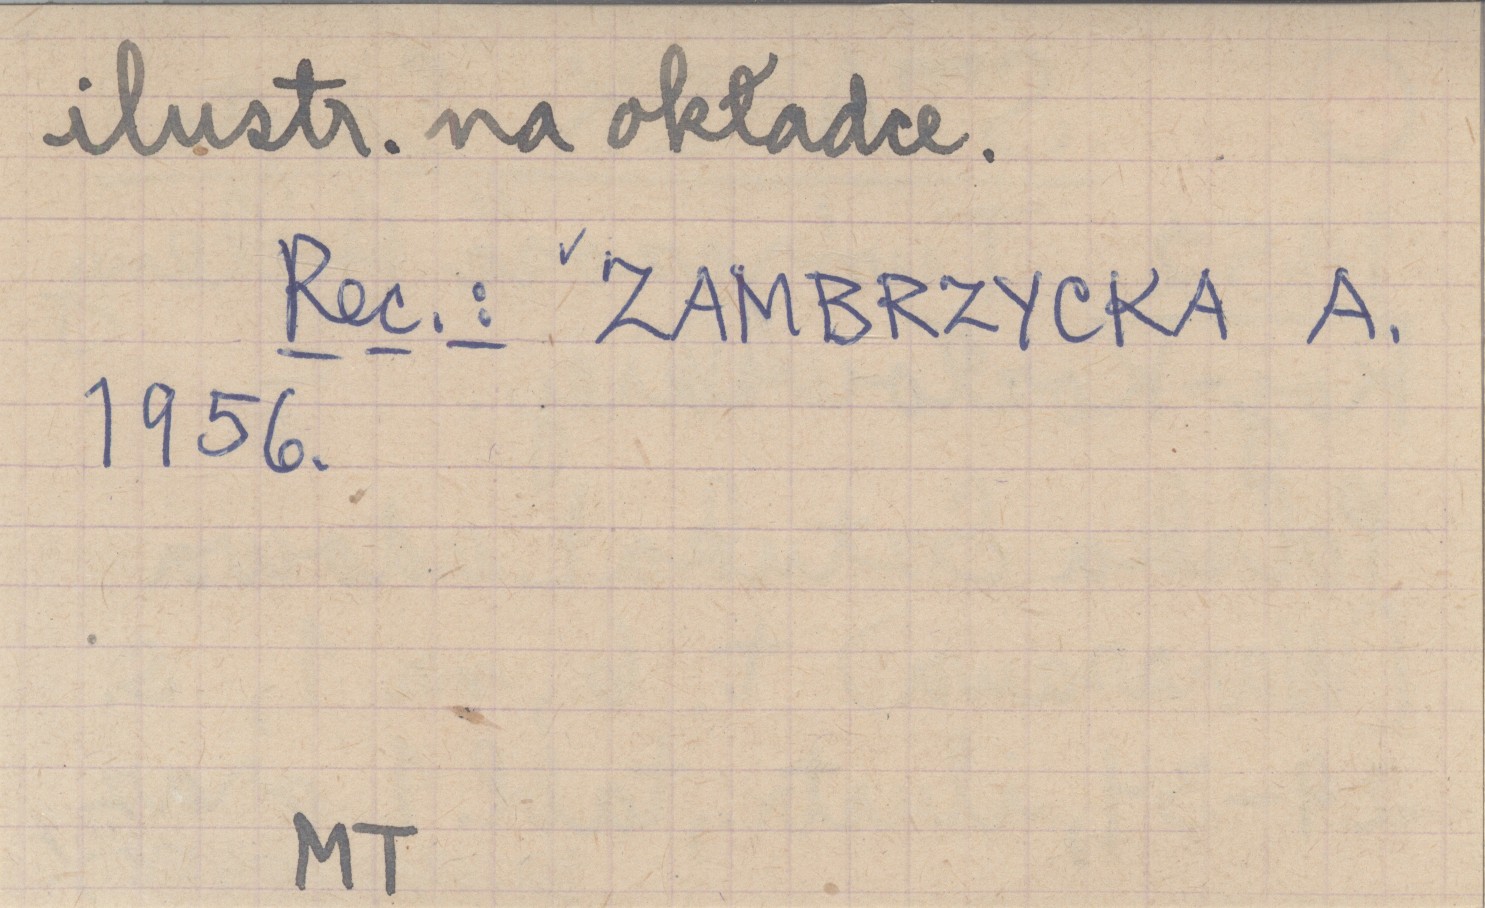 ilustr. na okładce.
Rec.: ✓ ZAMBRZYCKA A.
1956.
MT